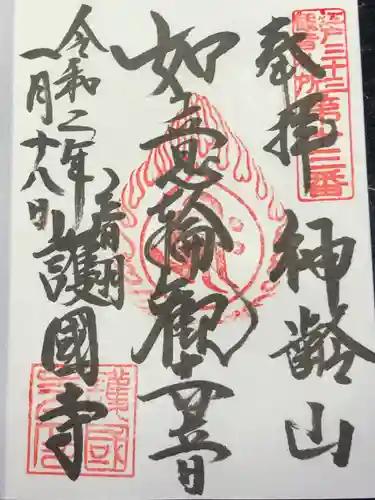 奉拝
神齢山
如意輪観世音
音羽
護國寺
令和二年
一月十八日
江戸三十三
観音札所
第十三番